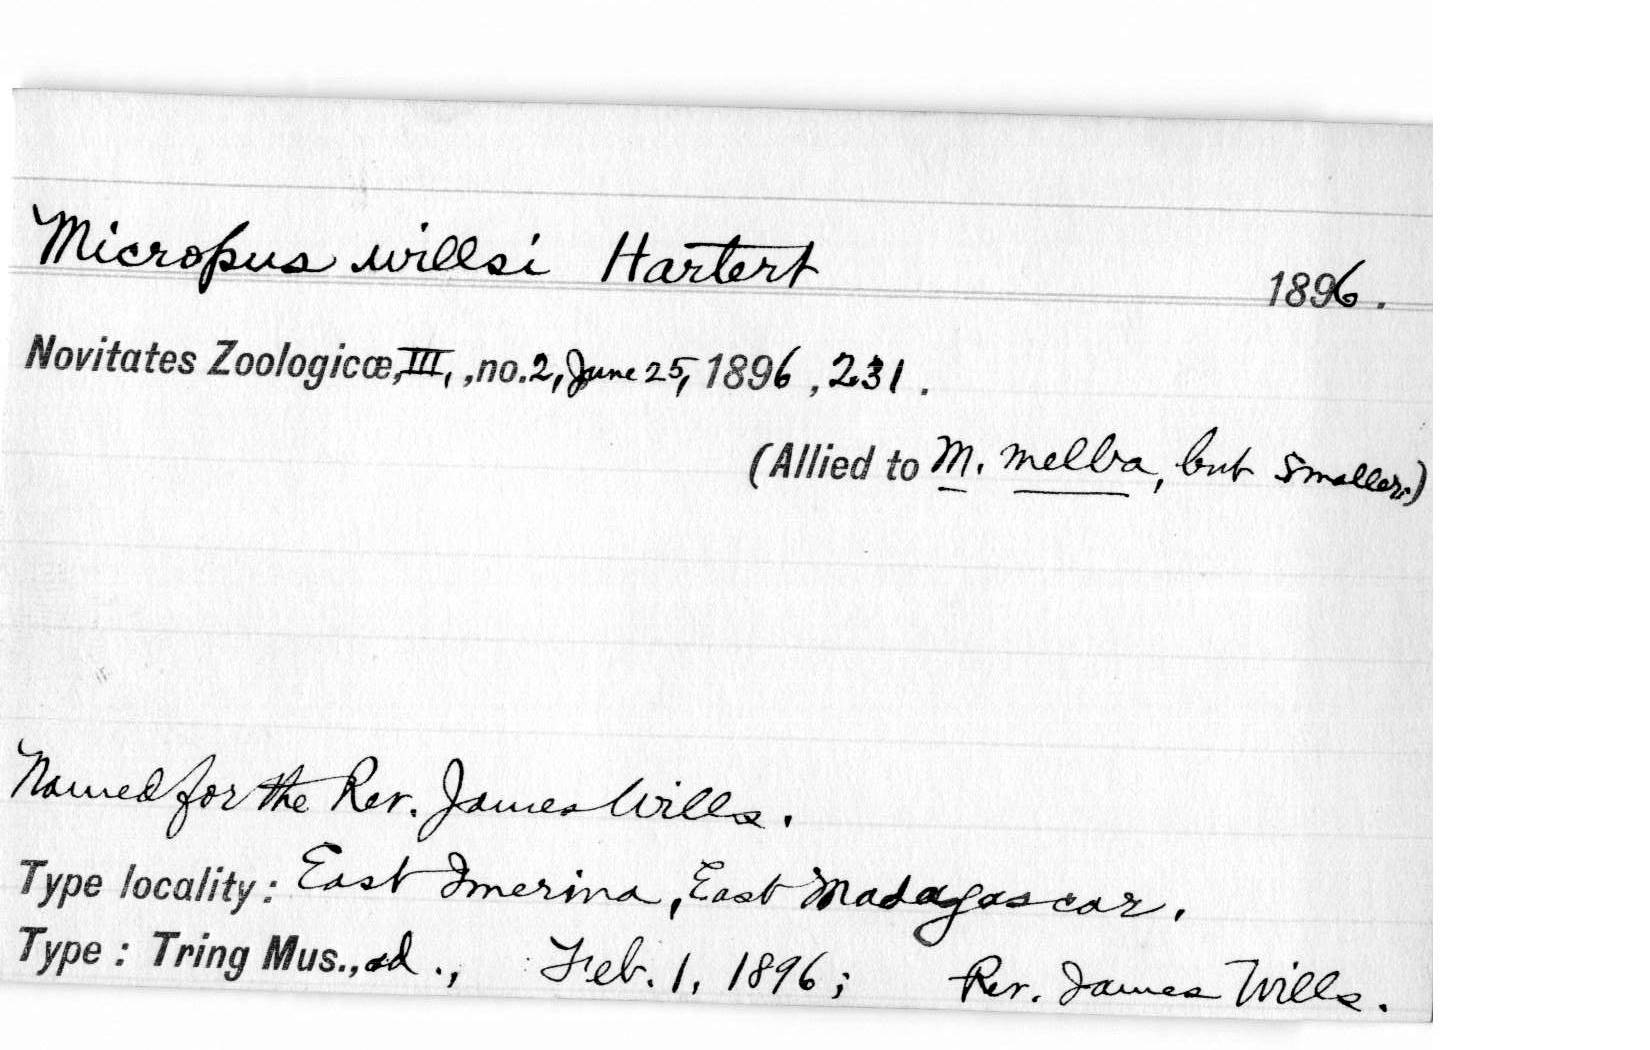 Micropus willsi Hartert 1896.
Novitates Zoologicæ, III, ,no.2, June 25, 1896 , 231 .
(Allied to M. melba, but smaller.)
Named for the Rev. James Wills.
Type locality: East Imerina, East Madagascar.
Type : Tring Mus., ad ., Feb. 1, 1896; Rev. James Wills.